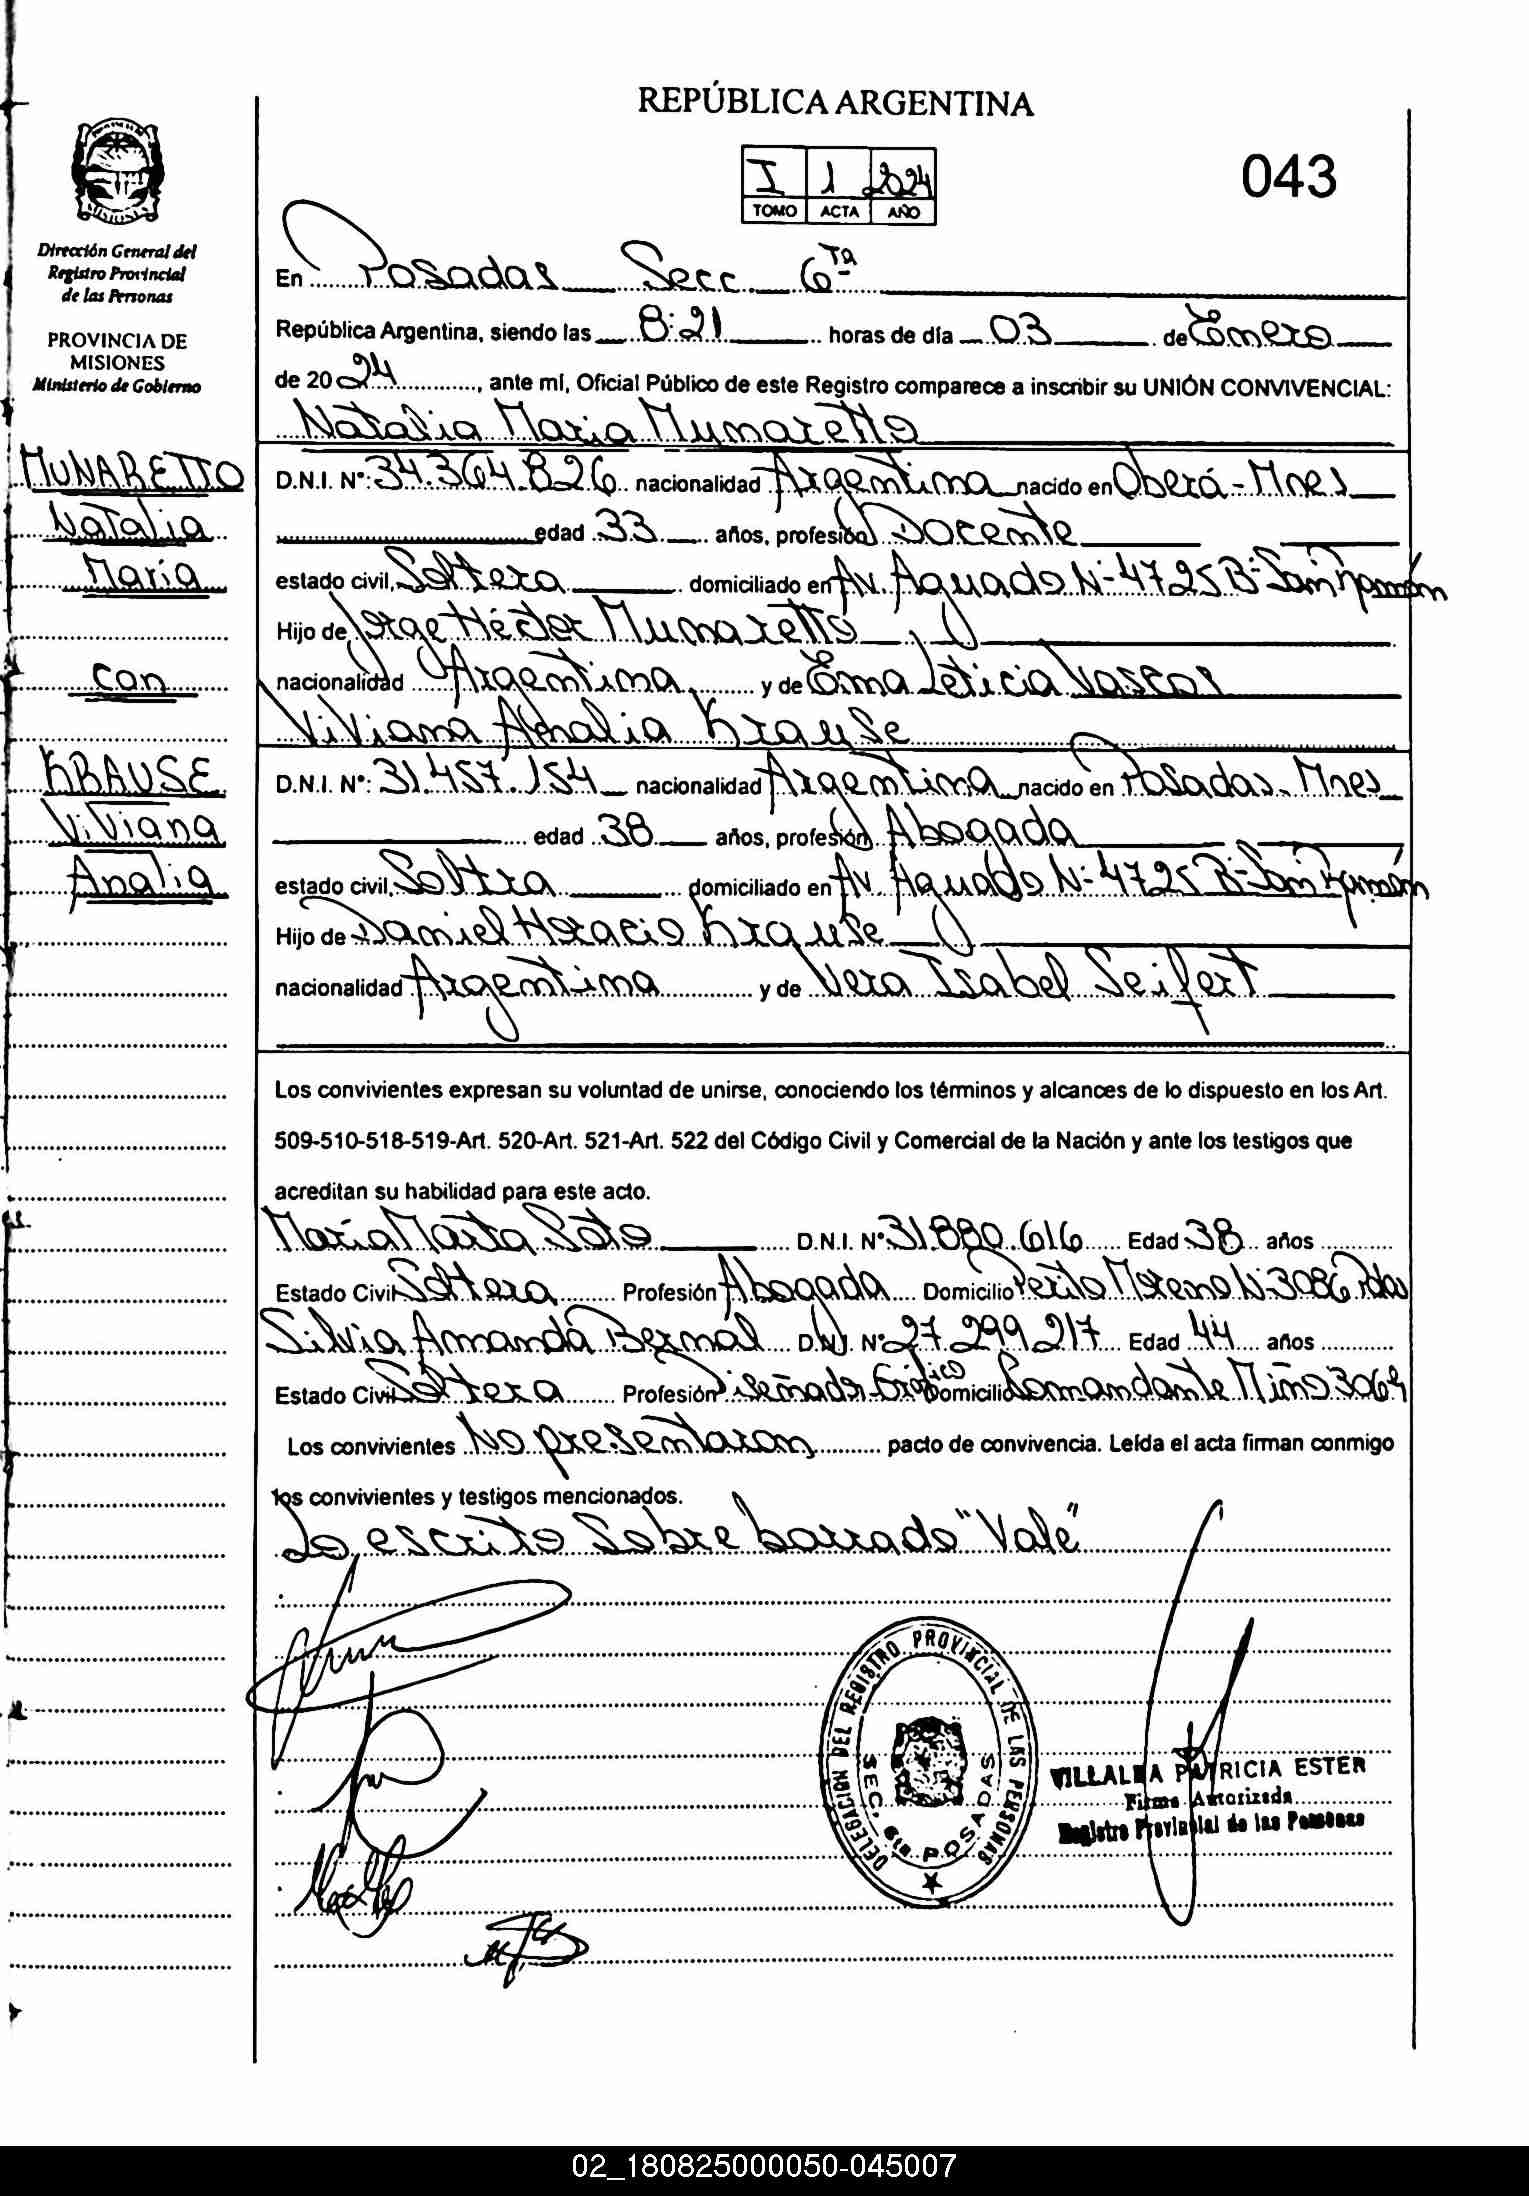 REPÚBLICA ARGENTINA
I 1 2024
TOMO ACTA AÑO
043
MISIONES
Dirección General del
Registro Provincial
de las Personas
PROVINCIA DE
MISIONES
Ministerio de Gobierno
MUNARETTO
Natalia
María
con
KRAUSE
Viviana
Analia
En Posadas Secc 6ta
República Argentina, siendo las 8:21 horas de día 03 de Enero
de 2024, ante mí, Oficial Público de este Registro comparece a inscribir su UNIÓN CONVIVENCIAL:
Natalia Maria Munaretto
D.N.I. N°: 34.364.826 nacionalidad Argentina nacido en Oberá - Mnes
edad 33 años, profesión Docente
estado civil, Soltera domiciliado en Av. Aguado N- 4725 B- San Ramón
Hijo de Jorge Héctor Munaretto
nacionalidad Argentina y de Ema Leticia Vascos
Viviana Analia Krause
D.N.I. N°: 31.457.154 nacionalidad Argentina nacido en Posadas - Mnes
edad 38 años, profesión Abogada
estado civil, Soltra domiciliado en Av. Aguado N- 4725 B- San Ramón
Hijo de Daniel Horacio Krause
nacionalidad Argentina y de Vera Isabel Seifert
Los convivientes expresan su voluntad de unirse, conociendo los términos y alcances de lo dispuesto en los Art.
509-510-518-519-Art. 520-Art. 521-Art. 522 del Código Civil y Comercial de la Nación y ante los testigos que
acreditan su habilidad para este acto.
María Marta Soto D.N.I. N° 31.880.616 Edad 38 años
Estado Civil Soltera Profesión Abogada Domicilio Perito Moreno N- 3086 Pdas
Silvia Amanda Bernal D.N.I. N° 27.299.217 Edad 44 años
Estado Civil Soltera Profesión Diseñado Gráfico Domicilio Comandante Miño 3069
Los convivientes No presentaron pacto de convivencia. Leída el acta firman conmigo
los convivientes y testigos mencionados.
Lo escrito Sobre borrado "Vale"
DELEGACION DEL REGISTRO PROVINCIAL DE LAS PERSONAS
SEC. 6ta POSADAS
VILLALBA PATRICIA ESTER
Firma Autorizada
Registro Provincial de las Personas
02_180825000050-045007